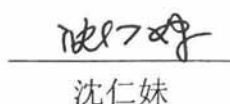 沈仁妹
沈仁妹